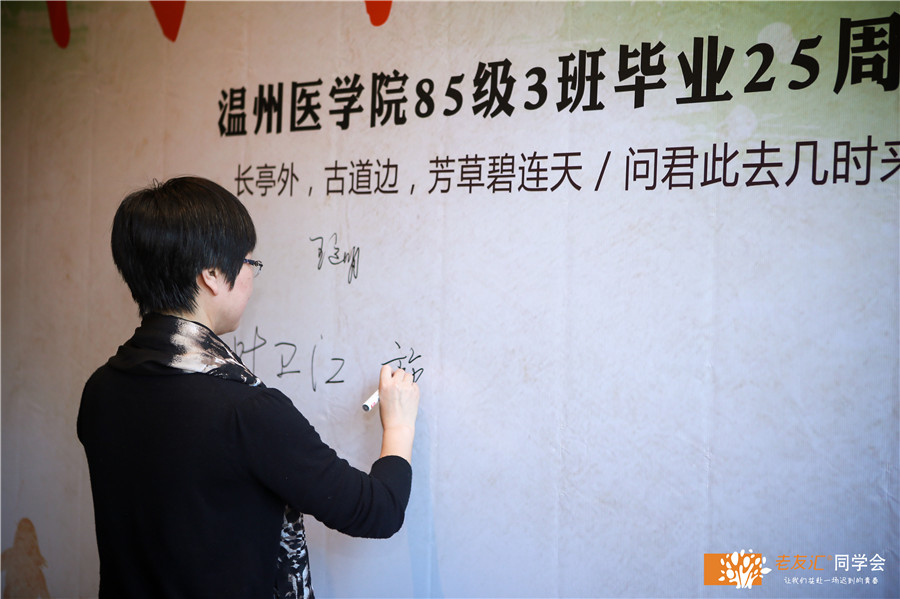 温州医学院85级3班毕业25周
长亭外，古道边，芳草碧连天 / 问君此去几时
叶卫江
老友汇 同学会
让我们在赴一场迟到的青春